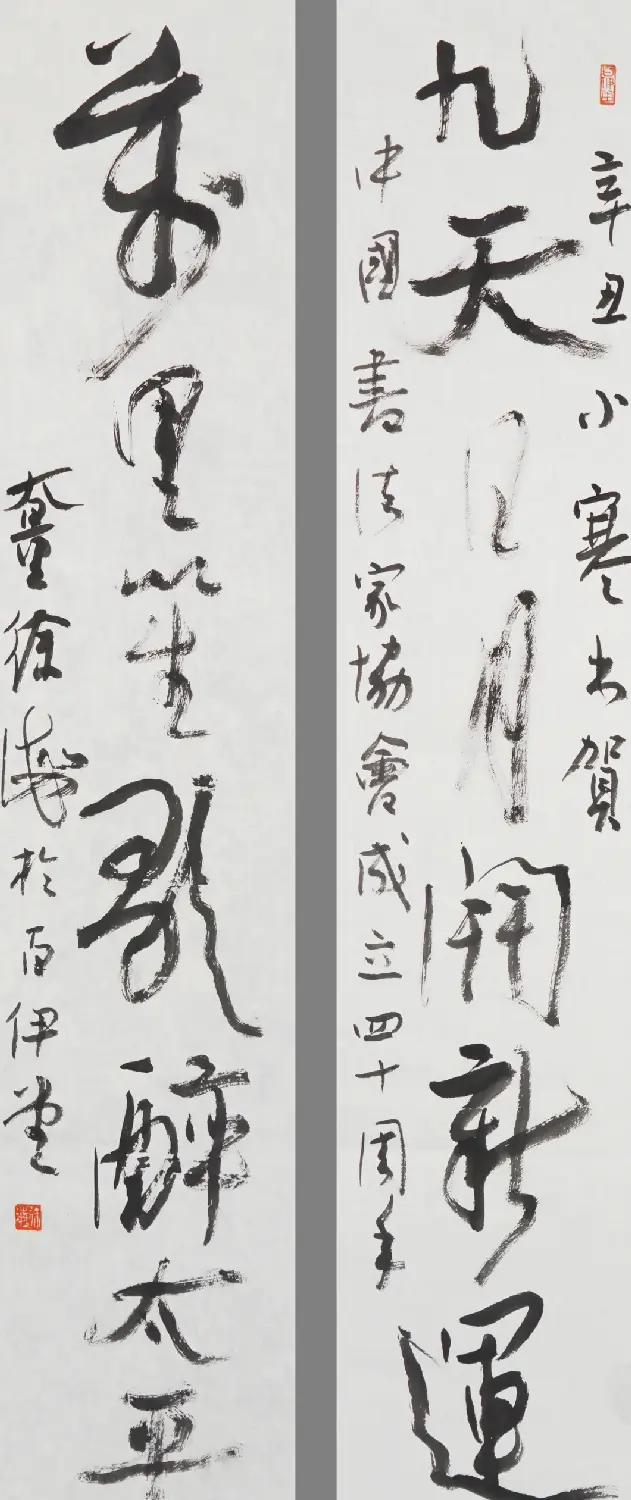 辛丑小寒书贺
九天日月開新運
中國書法家協會成立四十周年
萬里笙歌醉太平
徐海於百伊堂